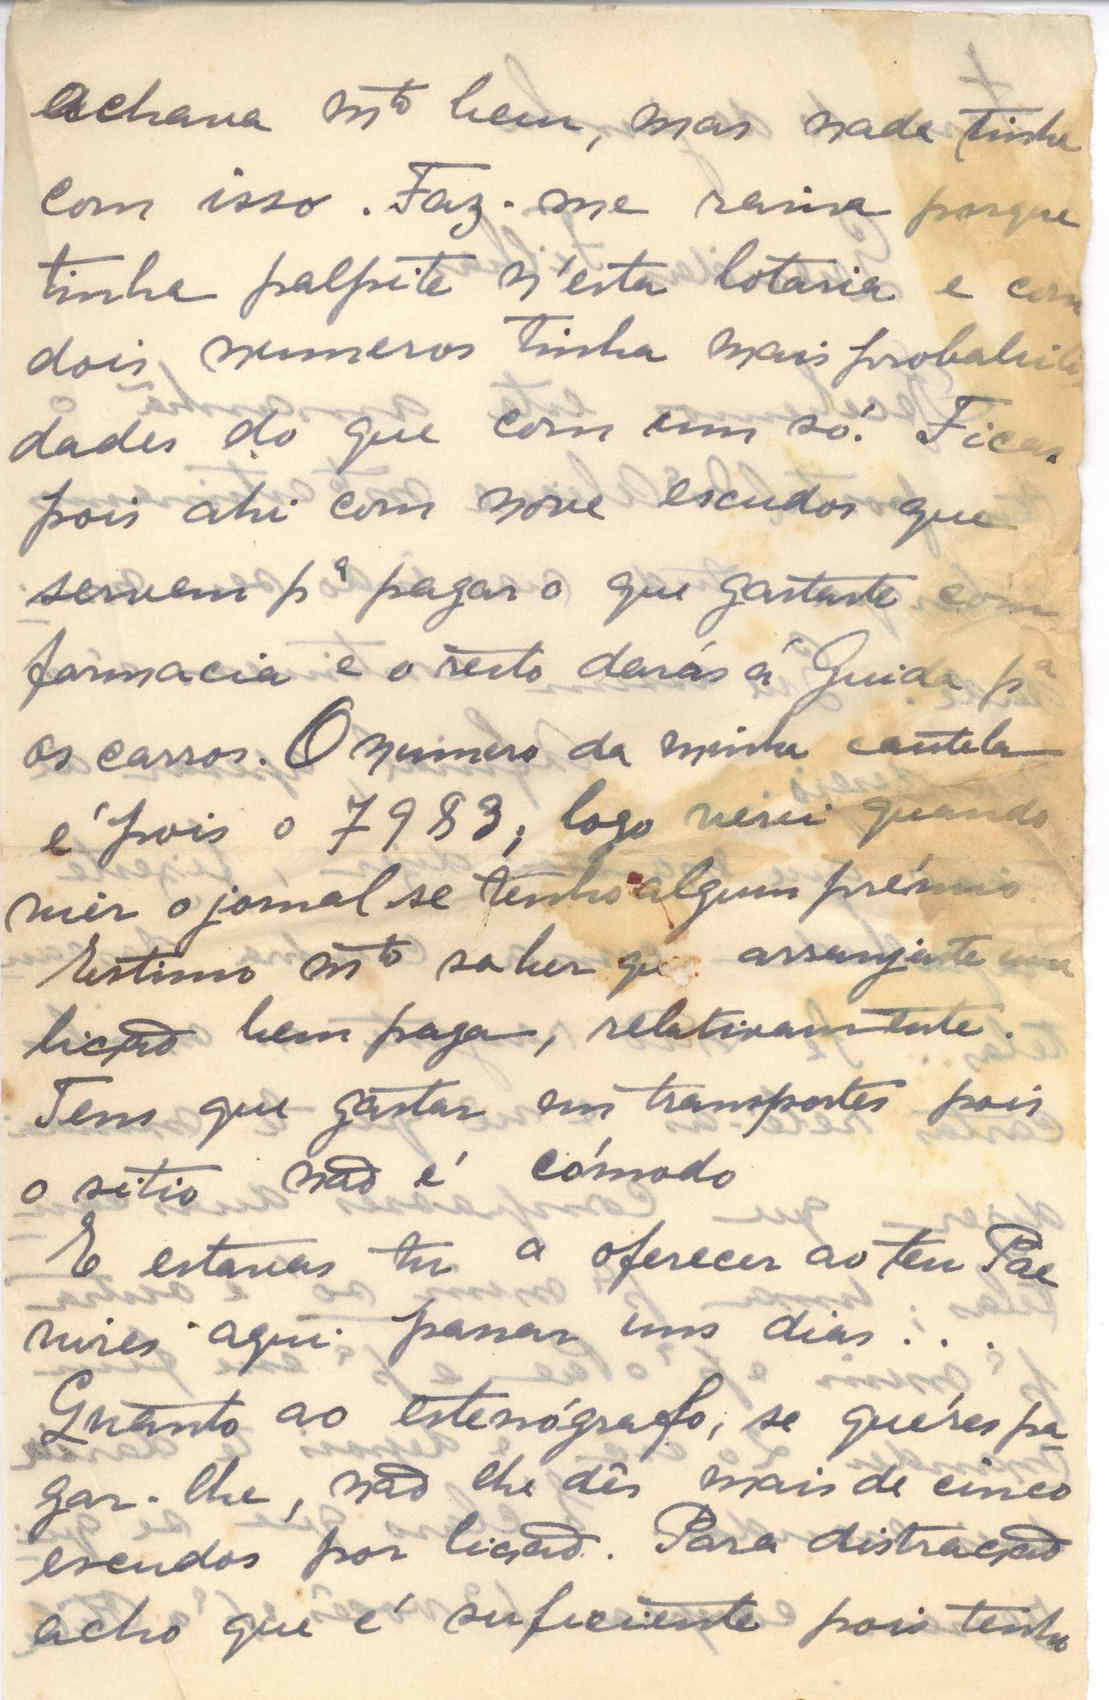 achava mto bem, mas nada tinha
com isso. Faz-me raiva porque
tinha palpite n'esta lotaria e com
dois numeros tinha mais probabili
dades do que com um só. Ficas
pois ahi com nove escudos que
servem pª pagar o que gastaste com
farmacia e o resto darás á Guida pª
os carros. O numero da minha cautela
é pois o 7983; logo verei quando
vier o jornal se tenho algum prémio.
Estimo mto saber qe arranjaste uma
lição bem paga, relativamente.
Tens que gastar em transportes pois
o sitio não é cómodo
E estavas tu a oferecer ao teu Pae
vires aqui passar uns dias...
Quanto ao estenógrafo, se quéres pa-
gar-lhe, não lhe dês mais de cinco
escudos por lição. Para distração
acho que é suficiente pois tenho